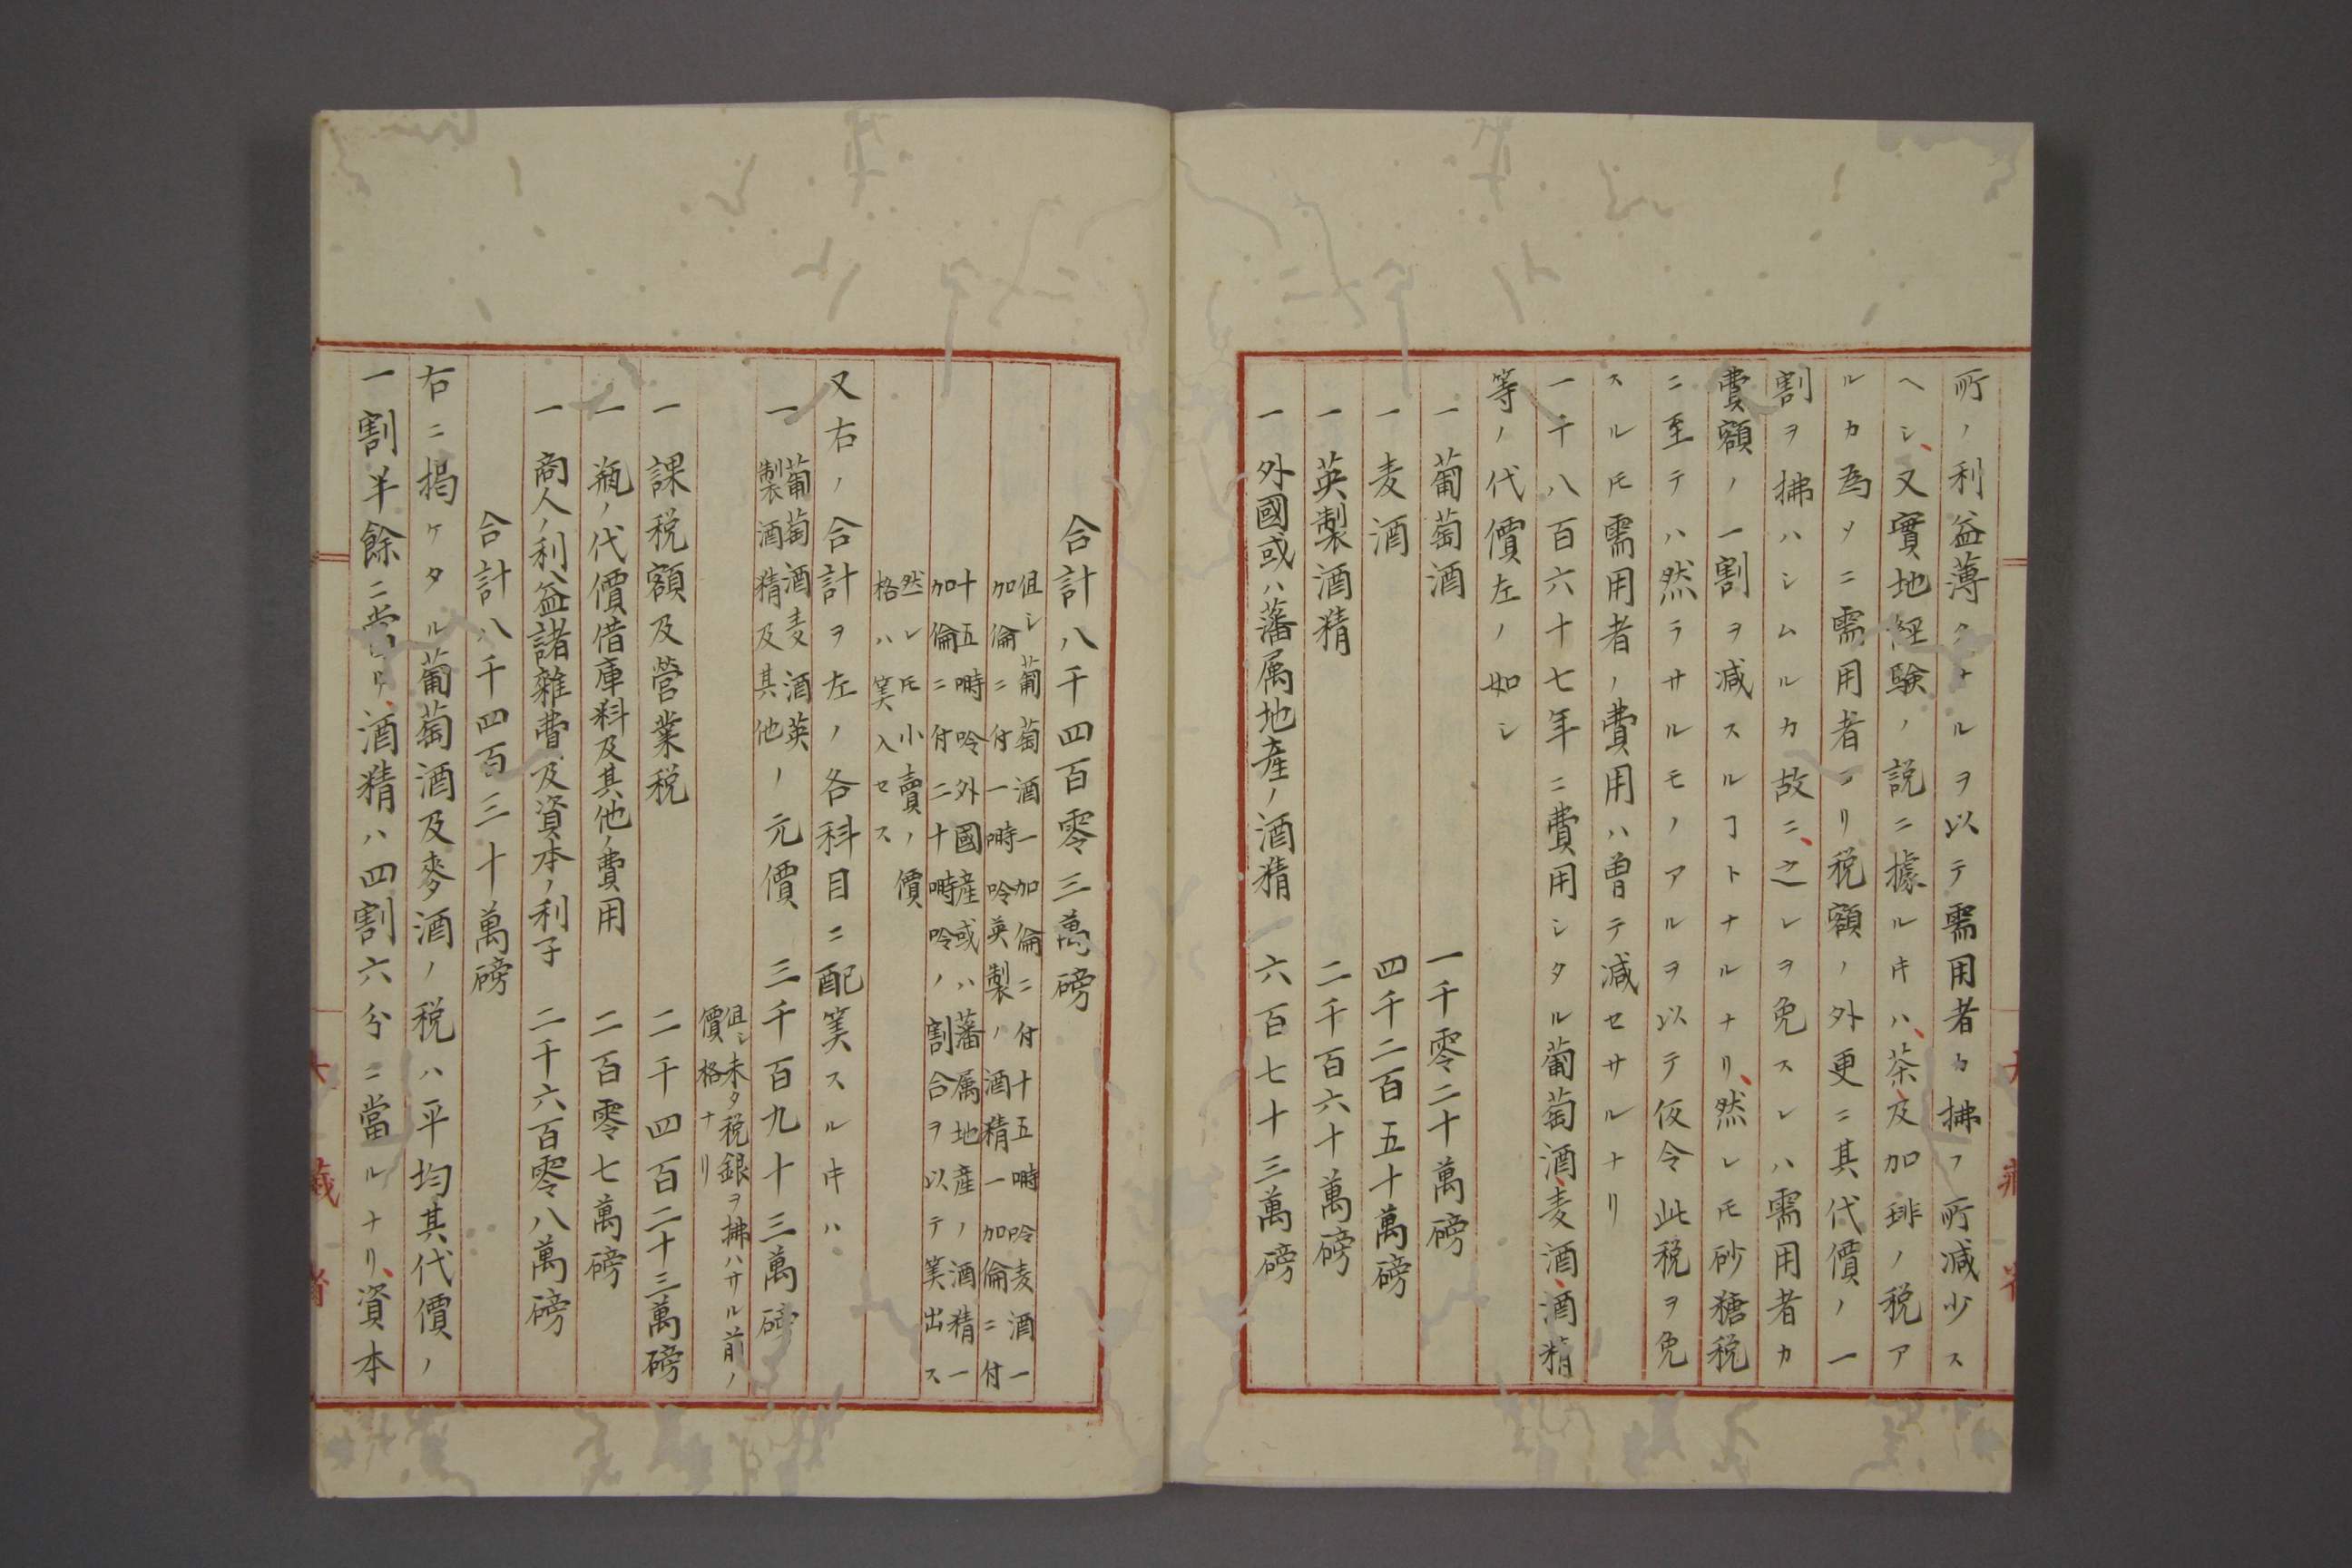 所ノ利益薄クナルヲ以テ需用者カ拂フ所減少ス
ヘシ、又實地経験ノ説ニ據ルキハ、茶及加琲ノ税ア
ルカ為メニ需用者ヨリ税額ノ外更ニ其代價ノ一
割ヲ拂ハシムルカ故ニ、之レヲ免スレハ需用者カ
費額ノ一割ヲ減スルヿトナルナリ、然レ𪜈砂糖税
ニ至テハ然ラサルモノアルヲ以テ仮令此税ヲ免
スル𪜈需用者ノ費用ハ曽テ減セサルナリ
一千八百六十七年ニ費用シタル葡萄酒、麦酒、酒精
等ノ代價左ノ如シ
一葡萄酒 一千零二十萬磅
一麦酒 四千二百五十萬磅
一英製酒精 二千百六十萬磅
一外國或ハ藩属地産ノ酒精 一六百七十三萬磅
合計八千四百零三萬磅
但シ葡萄酒一加倫ニ付十五嘶呤麦酒一
加倫ニ付一嘶呤英製ノ酒精一加倫ニ付
十五嘶呤外國産或ハ藩属地産ノ酒精一
加倫ニ付二十嘶呤ノ割合ヲ以テ筭出ス
然レ𪜈小賣ノ價
格ハ筭入セス
又右ノ合計ヲ左ノ各科目ニ配筭スルキハ
一葡萄酒麦酒英製酒精及其他ノ元價 三千百九十三萬磅
但シ未タ税銀ヲ拂ハサル前ノ
價格ナリ
一課税額及營業税 二千四百二十三萬磅
一瓶ノ代價借庫料及其他ノ費用 二百零七萬磅
一商人ノ利益諸雜費及資本ノ利子 二千六百零八萬磅
合計八千四百三十萬磅
右ニ掲ケタル葡萄酒及麥酒ノ税ハ平均其代價ノ
一割半餘ニ當リ、酒精ハ四割六分ニ當ルナリ、資本